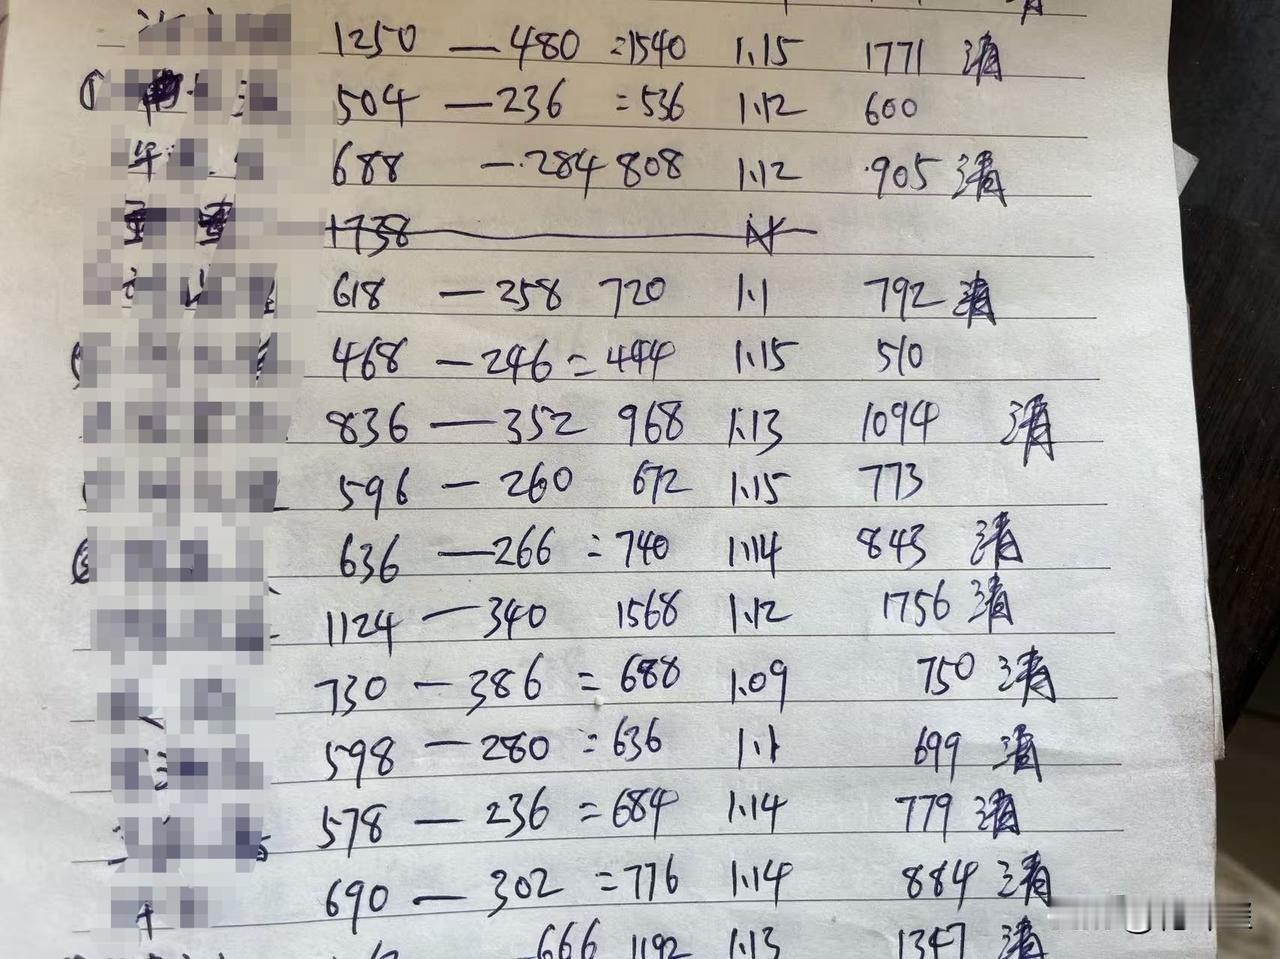 1250 — 480 =1540 1.15 1771 清
504 — 236 =536 1.12 600
688 — 284 808 1.12 905 清
1738
618 — 258 720 1.1 792 清
468 — 246 = 444 1.15 510
836 — 352 968 1.13 1094 清
596 — 260 672 1.15 773
636 — 266 = 740 1.14 843 清
1124 — 340 1568 1.12 1756 清
730 — 386 = 688 1.09 750 清
598 — 280 = 636 1.1 699 清
578 — 236 = 684 1.14 779 清
690 — 302 = 776 1.14 884 清
666 1192 1.13 1347 清